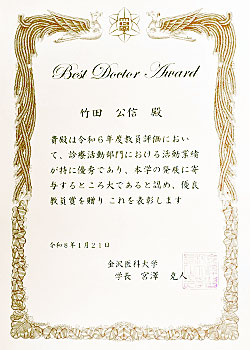 Best Doctor Award
竹田 公信 殿
貴殿は令和6年度教員評価におい
て、診療活動部門における活動業績
が特に優秀であり、本学の発展に寄
与するところ大であると認め、優良
教員賞を贈り これを表彰します
令和8年1月21日
金沢医科大学
学長 宮澤 克人